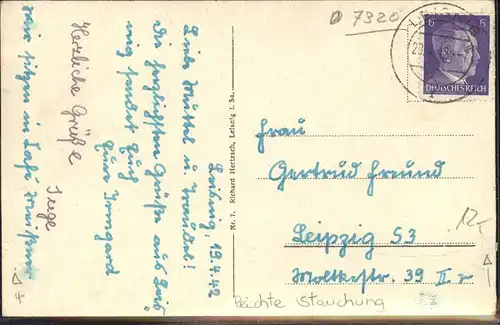 7320
LEISNIG
6
DEUTSCHES REICH
Leisnig, 19.4.42
Liebe Muttel u. Traudel!
Die herzlichsten Grüße aus Leis-
nig sendet Euch
Eure Irmgard
Herzliche Grüße
Inge
wir sitzen in
Nr. 7. Richard Hertzsch, Leisnig i. Sa.
Frau
Gertrud Freund
Leipzig S3
Moltkestr. 39 II. r
12,-
leichte Stauchung